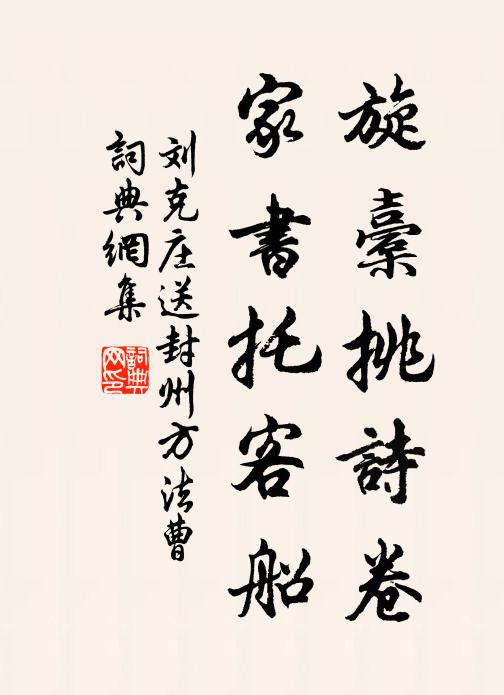 旋橐挑詩卷
家書托客船
刘克庄送封州方法曹
詞典網集
詞典网印